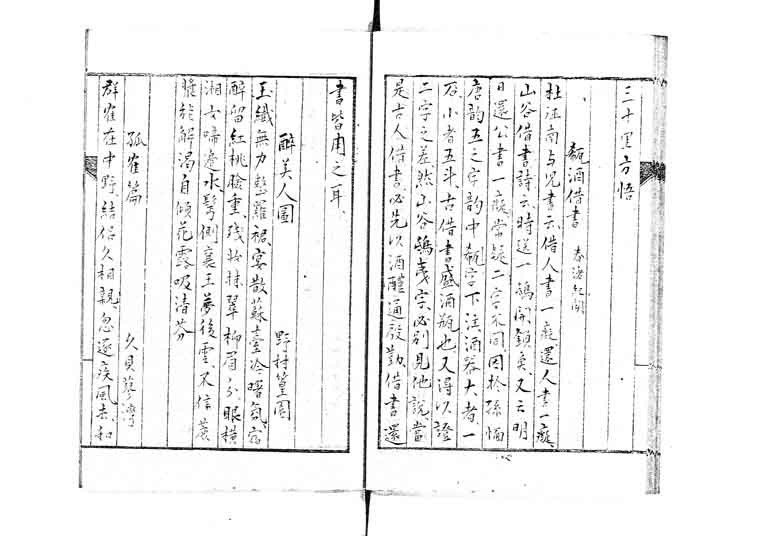 三十里方悟
瓻酒借書 春渚紀聞
杜征南与兒書云借人書一癡還人書一癡
山谷借書詩云時送一鴟開鎖魚又云明
日還公書一癡常疑二字不同因於孫愐
唐韵五之字韵中瓻字下注酒器大者一
石小者五斗古借書盛酒瓶也又得以證
二字之差然山谷鴟夷字必別見他說當
是古人借書必先以酒醴通殷勤借書還
書皆用之耳
醉美人圖 野村篁園
玉纖無力墜羅裙宴散蘇臺冷曙氛宿
醉留紅桃臉重殘妝抹翠柳眉分眼橫
湘女啼邊水髩側襄王夢後雲不信莀
脞能解渴自傾花露吸清芬
孤雀篇 久貝蓼灣
群雀在中野結侶久相親忽逐疾風去和